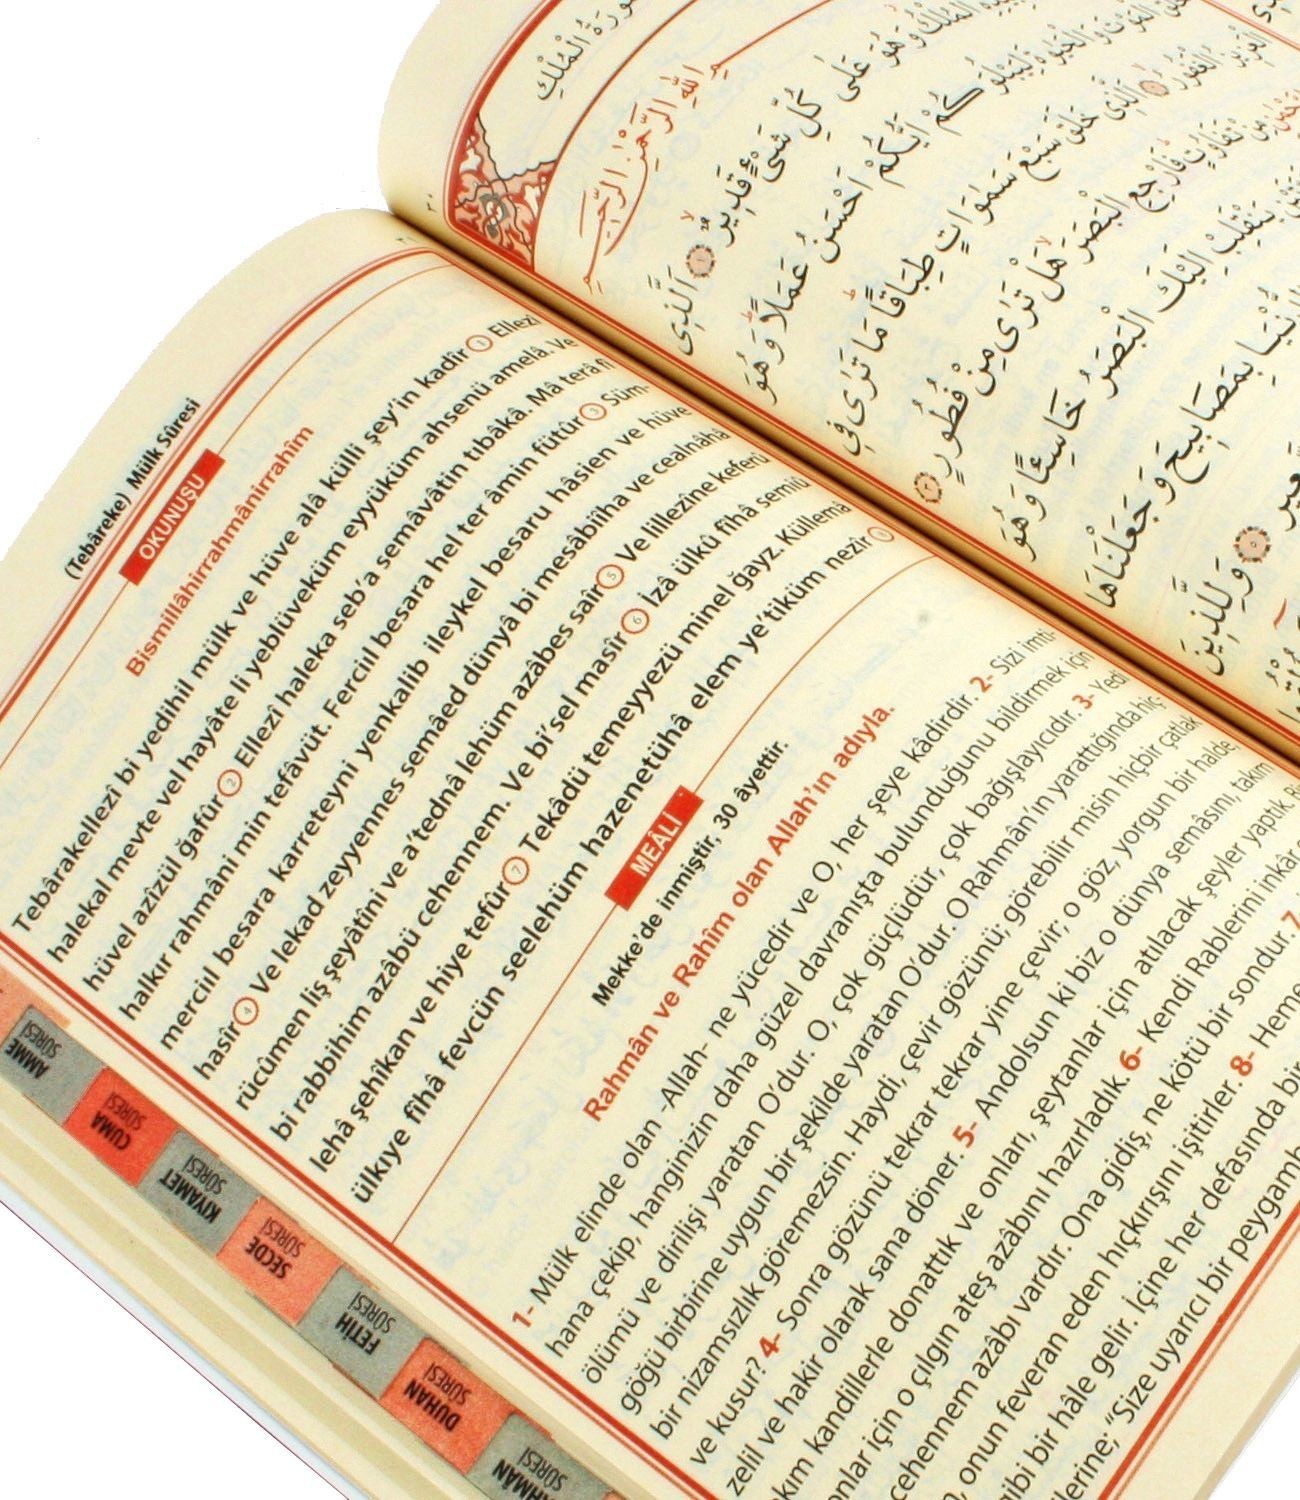 (Tebâreke) Mülk Sûresi
OKUNUŞU
Bismillâhirrahmânirrahîm
Tebârakellezî bi yedihil mülk ve hüve alâ külli şey'in kadîr 1 Ellezî
halekal mevte vel hayâte li yeblüveküm eyyüküm ahsenü amelâ. Ve
hüvel azîzül ğafûr 2 Ellezî haleka seb'a semâvâtin tıbâkâ. Mâ terâ fî
halkır rahmâni min tefâvüt. Ferciıl besara hel ter âmin fütûr 3 Süm-
merciıl besara karreteyni yenkalib ileykel besaru hâsien ve hüve
hasîr 4 Ve lekad zeyyennes semâed dünyâ bi mesâbîha ve cealnâhâ
rücûmen liş şeyâtîni ve a'tednâ lehüm azâbes saîr 5 Ve lillezîne keferû
bi rabbihim azâbü cehennem. Ve bi'sel masîr 6 İzâ ülkû fîhâ semiû
lehâ şehîkan ve hiye tefûr 7 Tekâdü temeyyezü minel ğayz. Küllemâ
ülkıye fîhâ fevcün seelehüm hazenetühâ elem ye'tiküm nezîr 8
MEÂLİ
Mekke'de inmiştir, 30 âyettir.
Rahmân ve Rahîm olan Allah'ın adıyla.
1- Mülk elinde olan -Allah- ne yücedir ve O, her şeye kâdirdir. 2- Sizi imti-
hana çekip, hanginizin daha güzel davranışta bulunduğunu bildirmek için
ölümü ve dirilişi yaratan O'dur. O, çok güçlüdür, çok bağışlayıcıdır. 3- Yedi
göğü birbirine uygun bir şekilde yaratan O'dur. O Rahmân'ın yarattığında hiç-
bir nizamsızlık göremezsin. Haydi, çevir gözünü; görebilir misin hiçbir çatlak
ve kusur? 4- Sonra gözünü tekrar tekrar yine çevir; o göz, yorgun bir halde,
zelil ve hakir olarak sana döner. 5- Andolsun ki biz o dünya semâsını, takım
kım kandillerle donattık ve onları, şeytanlar için atılacak şeyler yaptık.
onlar için o çılgın ateş azabını hazırladık. 6- Kendi Rablerini inkâr
cehennem azâbı vardır. Ona gidiş, ne kötü bir sondur. 7
onun feveran eden hıçkırışını işitirler. 8- Heme
gibi bir hâle gelir. İçine her defasında bir
lerine; "Size uyarıcı bir peygamb
AMME SÛRESİ
CUMA SÛRESİ
KIYAMET SÛRESİ
SECDE SÛRESİ
FETİH SÛRESİ
DUHAN SÛRESİ
HMÂN SÛRESİ
سُورَةُ الْمُلْكِ
بِسْمِ اللّٰهِ الرَّحْمٰنِ الرَّحِيمِ
الْمُلْكُ وَهُوَ عَلٰى كُلِّ شَيْءٍ قَدِيرٌ ۙ ١ اَلَّذِى
الْمَوْتَ وَالْحَيٰوةَ لِيَبْلُوَكُمْ اَيُّكُمْ اَحْسَنُ عَمَلًا ۜ وَهُوَ
الْعَزِيزُ الْغَفُورُ ۙ ٢ اَلَّذِى خَلَقَ سَبْعَ سَمٰوَاتٍ طِبَاقًا ۜ مَا تَرٰى فِى
مِنْ تَفَاوُتٍ ۜ فَارْجِعِ الْبَصَرَ ۙ هَلْ تَرٰى مِنْ فُطُورٍ ٣
يَنْقَلِبْ اِلَيْكَ الْبَصَرُ خَاسِئًا وَهُوَ
الدُّنْيَا بِمَصَابِيحَ وَجَعَلْنَاهَا
السَّعِيرِ ٥ وَلِلَّذِينَ